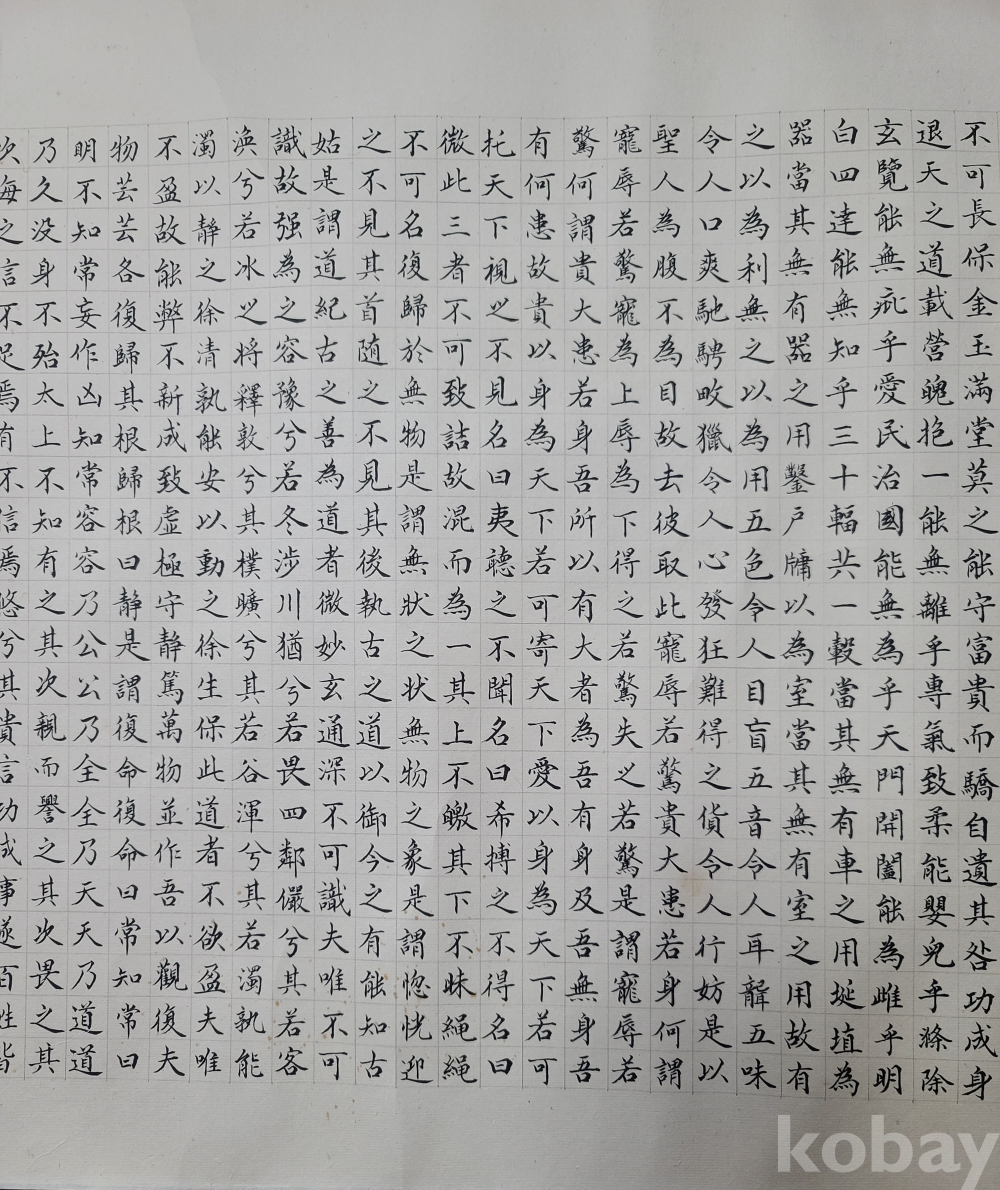 不可長保金玉滿堂莫之能守富貴而驕自遺其咎功成身
退天之道載營魄抱一能無離乎專氣致柔能嬰兒乎滌除
玄覽能無疵乎愛民治國能無為乎天門開闔能為雌乎明
白四達能無知乎三十輻共一轂當其無有車之用埏埴為
器當其無有器之用鑿戶牖以為室當其無有室之用故有
之以為利無之以為用五色令人目盲五音令人耳聾五味
令人口爽馳騁畋獵令人心發狂難得之貨令人行妨是以
聖人為腹不為目故去彼取此寵辱若驚貴大患若身何謂
寵辱若驚寵為上辱為下得之若驚失之若驚是謂寵辱若
驚何謂貴大患若身吾所以有大者為吾有身及吾無身吾
有何患故貴以身為天下若可寄天下愛以身為天下若可
托天下視之不見名曰夷聽之不聞名曰希搏之不得名曰
微此三者不可致詰故混而為一其上不皦其下不昧繩繩
不可名復歸於無物是謂無狀之状無物之象是謂惚恍迎
之不見其首随之不見其後執古之道以御今之有能知古
姑是謂道紀古之善為道者微妙玄通深不可識夫唯不可
識故强為之容豫兮若冬涉川猶兮若畏四鄰儼兮其若客
渙兮若冰之将釋敦兮其樸曠兮其若谷渾兮其若濁孰能
濁以靜之徐清孰能安以動之徐生保此道者不欲盈夫唯
不盈故能弊不新成致虛極守静篤萬物並作吾以觀復夫
物芸芸各復歸其根歸根曰静是謂復命復命曰常知常曰
明不知常妄作凶知常容容乃公公乃全全乃天天乃道道
乃久没身不殆太上不知有之其次親而譽之其次畏之其
次侮之信不足焉有不信焉悠兮其貴言功成事遂百姓皆
kobay